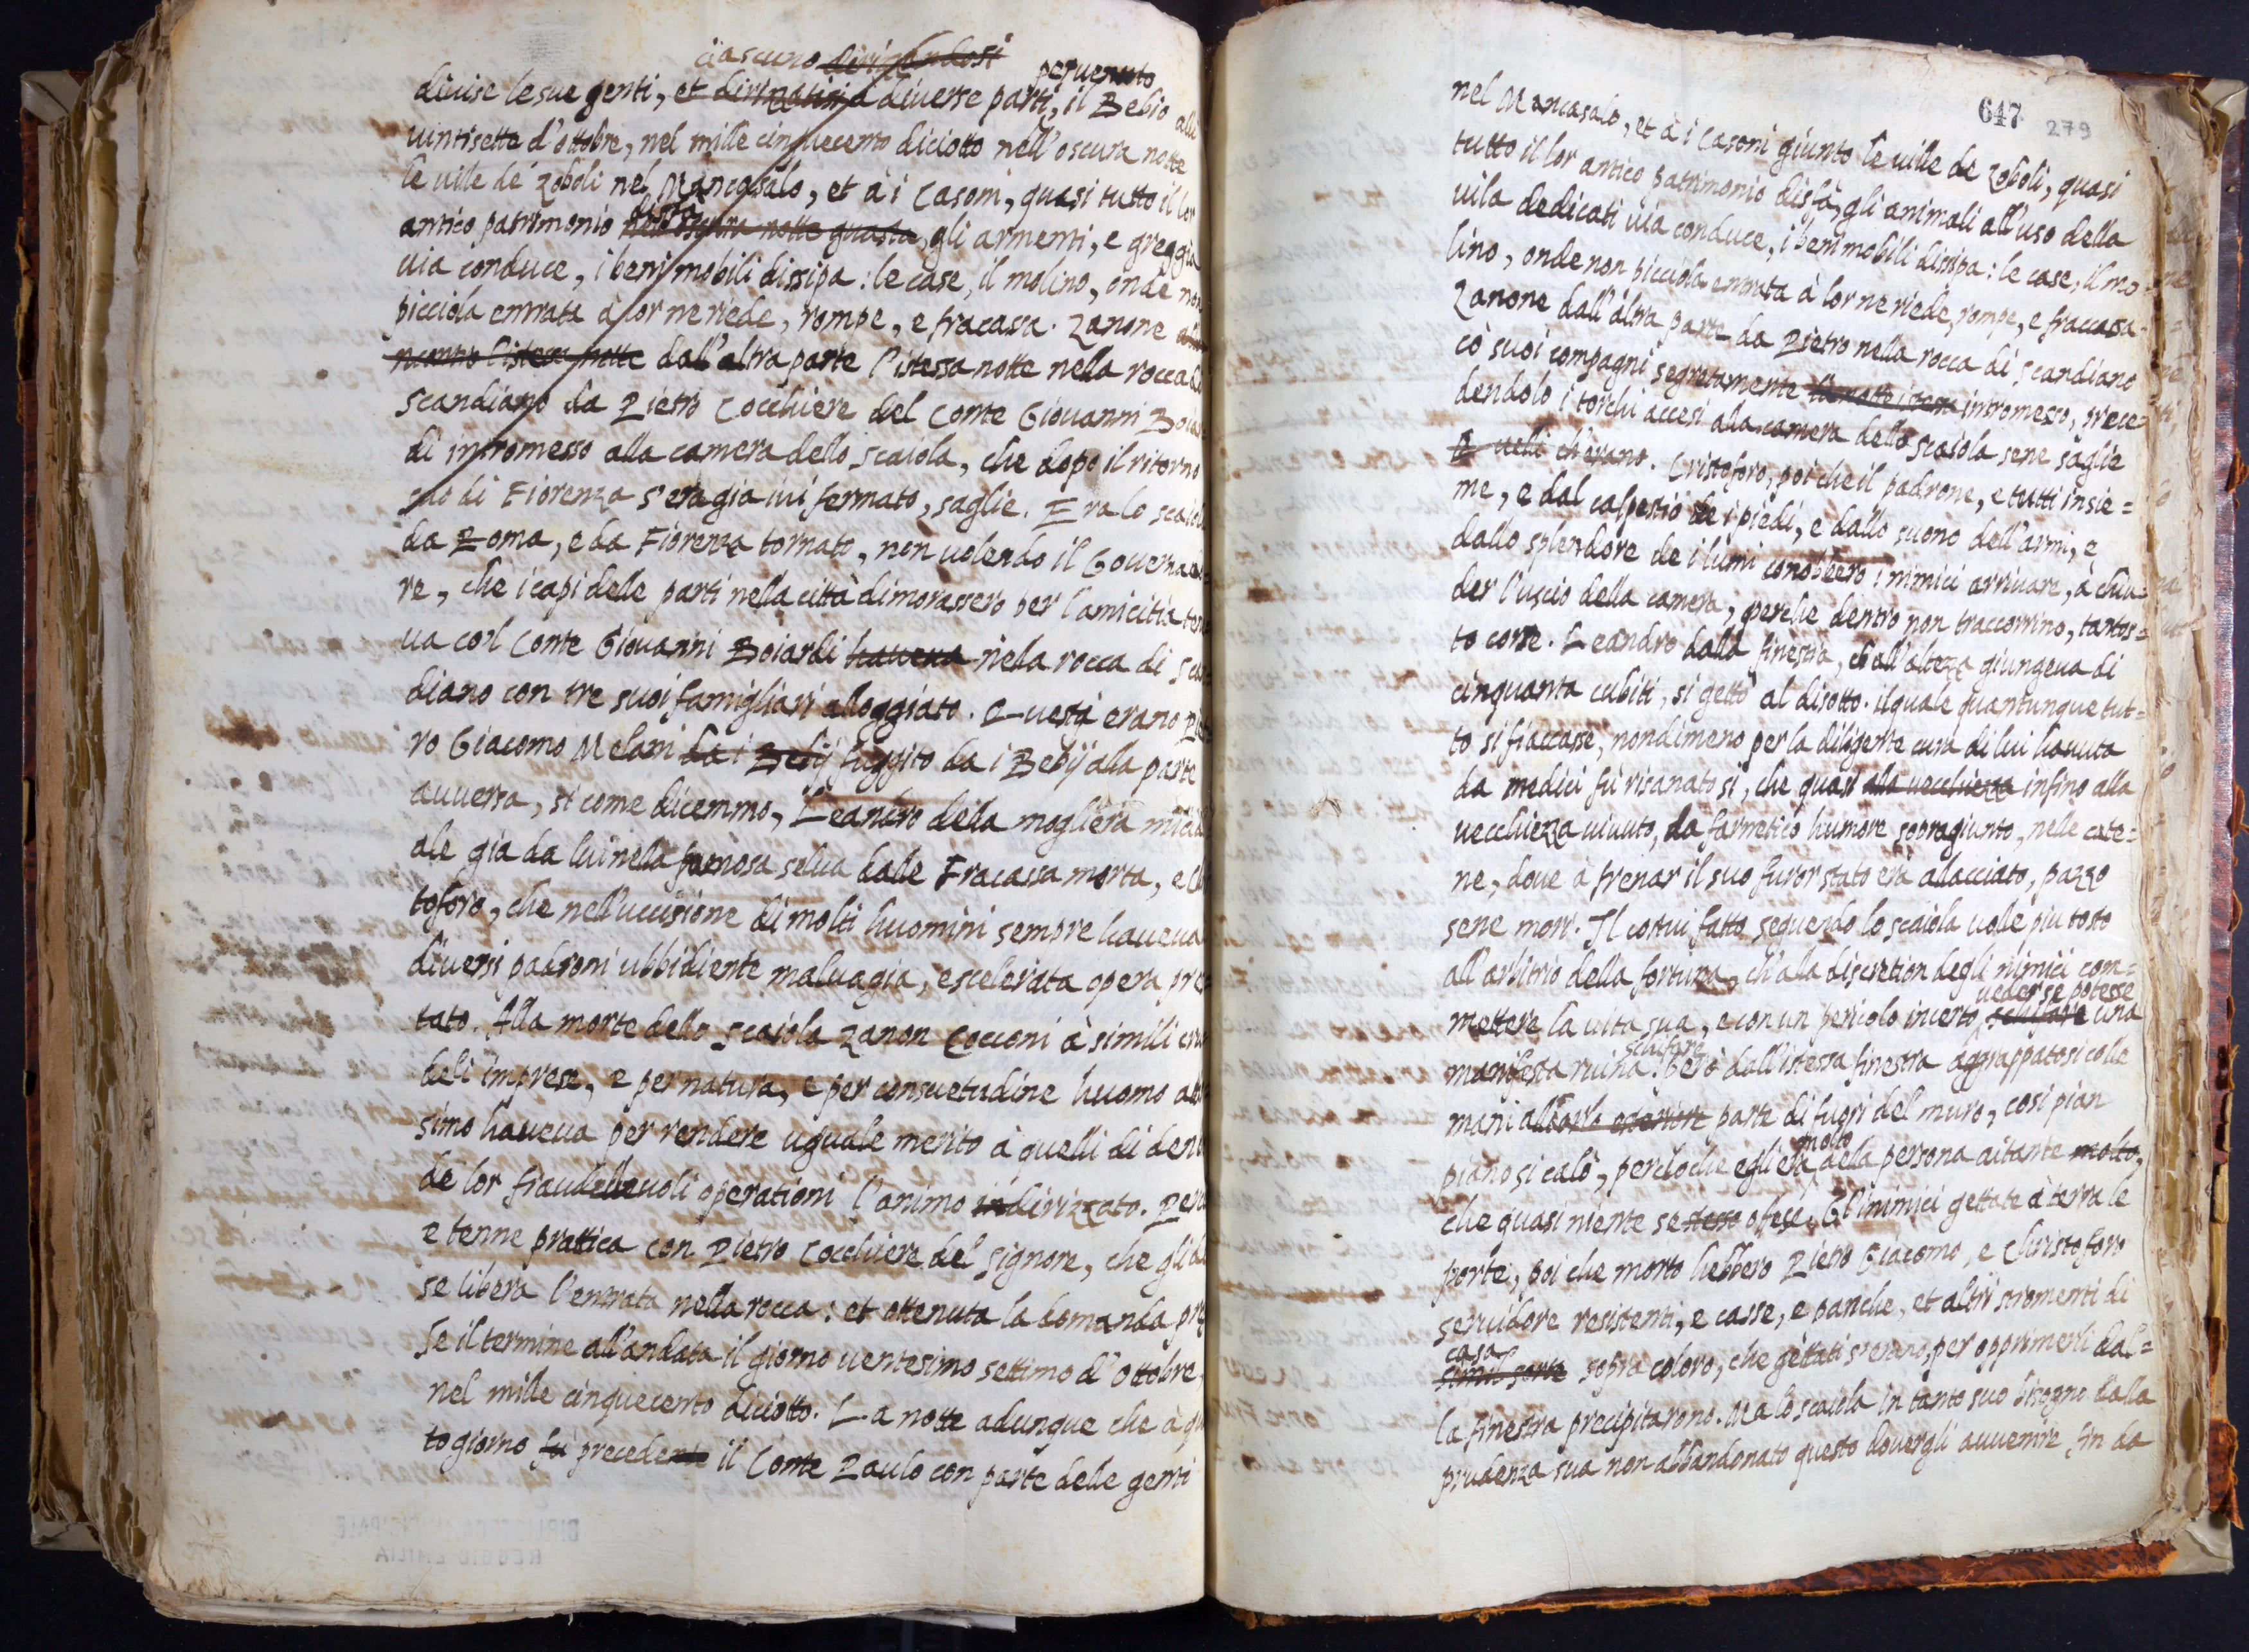 ciascuno dirizandosi
peruenuto
diuise le sue genti, et dirizatisi à diuerse parti, il Bebio alli
uintisette d'ottobre, nel mille cinquecento diciotto nell'oscura notte
le uille de zoboli nel Mancasalo, et à i Casoni, quasi tutto il lor
antico patrimonio nell'oscura notte guasta, gli armenti, e greggia
uia conduce, i beni mobili dissipa: le case, il molino, onde non
picciola entrata à lor ne riede, rompe, e fracassa. Zanone
l'istessa notte dall'altra parte l'istessa notte nella rocca di
Scandiano da Pietro Cocchiere del Conte Giouanni Boiar
di intromesso alla camera dello Scaiola, che dopo il ritorno
suo di Fiorenza s'era gia iui fermato, saglie. Era lo Scaiola
da Roma, e da Fiorenza tornato, non uolendo il Gouernado=
re, che i capi delle parti nella città dimorassero per l'amicitia tene
ua co'l Conte Giouanni Boiardi haueua nela rocca di Scan
diano con tre suoi famigliari alloggiato. Questi erano Piet
ro Giacomo Melani da i Bebij fuggito da i Bebij alla parte
auuersa, si come dicemmo, Leandro della mogliera micidi
ale gia da lui nella famosa selua dalle Fracassa morta, e Chri
toforo, che nell'uccisione di molti huomini sempre haueua
diuersi padroni ubbidiente maluagia, e scelerata opera pres
tato. Alla morte dello Scaiola Zanon Cocconi à simili cru
deli imprese, e per natura, e per consuetudine huomo atti
simo haueua per rendere uguale merito à quelli di dent
de lor fraudelleuoli operationi l'animo indirizzato. Perci
e tenne prattica con Pietro Cocchiere del Signore, che gli de
se libera l'entrata nella rocca: et ottenuta la domanda pre
se il termine all'andata il giorno uentesimo settimo d'Ottobre,
nel mille cinquecento diciotto. La notte adunque che à qu
to giorno fu precedente il Conte Paulo con parte delle genti
BIBLIOTECA MUNICIPALE
REGGIO EMILIA
647 279
nel Mancasalo, et à i Casoni giunto le uille de Zoboli, quasi
tutto il lor antico patrimonio disfà, gli animali all'uso della
uila dedicati uia conduce, i beni mobili dissipa: le case, il mo=
lino, onde non picciola entrata à lor ne riede, rompe, e fraccassa.
Zanone dall'altra parte da Pietro nella rocca di Scandiano
cò suoi compagni segretamente la notte istessa intromesso, prece=
dendolo i torchi accesi alla camera dello Scaiola sene saglie
Quelli ch'erano. Cristoforo, poi che il padrone, e tutti insie=
me, e dal calpestio de i piedi, e dallo suono dell'armi, e
dallo splendore de i lumi conobbero i nimici arriuare, à chiu=
der l'uscio della camera, perche dentro non traccorrino, tantos=
to corse. Leandro dalla finestra, ch'all'alteza giungeua di
cinquanta cubiti, si gettò al disotto. ilquale quantunque tut=
to si fiaccasse, nondimeno per la diligente cura di lui hauuta
da medici fù risanato si, che quasi alla uecchiezza infino alla
uecchiezza uiuuto, da farnetico humore sopragiunto, nelle cate=
ne, doue à frenar il suo furor stato era allacciato, pazzo
sene morì. Il costui fatto seguendo lo Scaiola uolle piu tosto
all'arbitrio della fortuna, ch'alla discretion degli nimici com=
ueder se potesse
mettere la uita sua, e con un pericolo incerto schifare una
schifare
manifesta ruina. Però dall'istessa finestra aggrappatosi colle
mani parte di fuori del muro, cosi pian
molto
piano si calò, percioche egli era della persona aitante molto,
che quasi niente se stesso ofese. Gl'inimici gettate à terra le
porte, poi che morto hebbero Pietro Giacomo, e Christoforo
seruidore resistenti, e casse, e panche, et altri stromenti di
casa
simil sorte sopra coloro, che gettati s'erano, per opprimerli dal=
la finestra precipitarono. Ma lo Scaiola in tanto suo bisogno dalla
prudenza sua non abbandonato questo douergli auuenire fin da